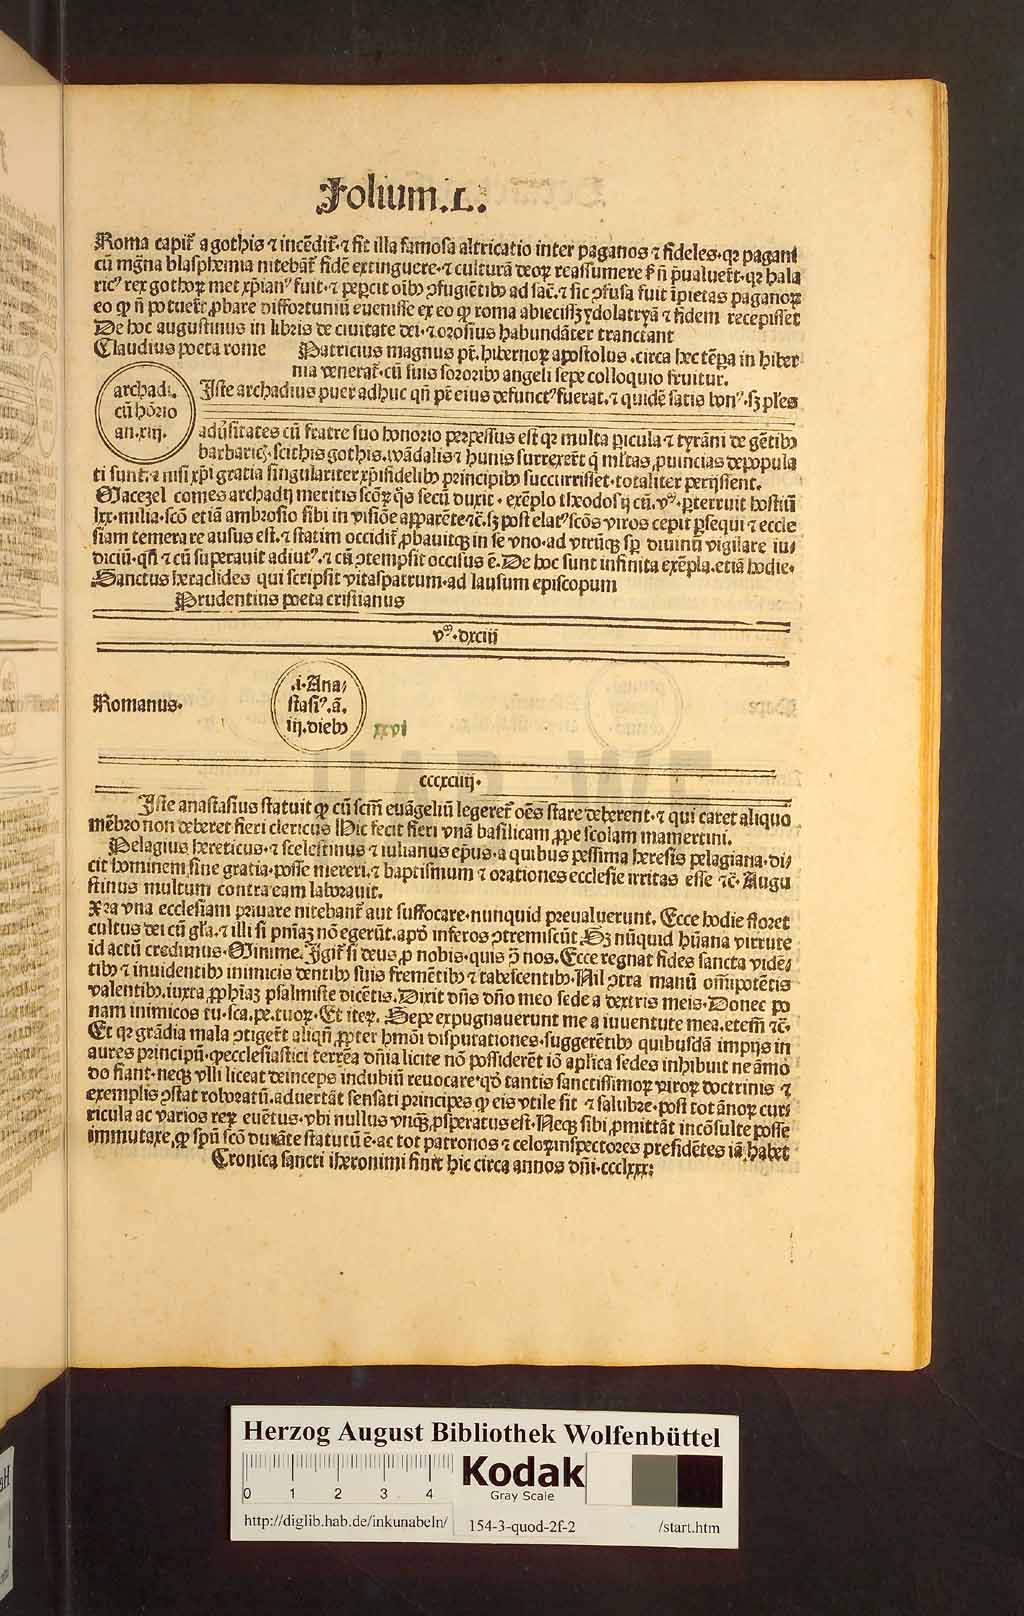 Folium.L.
Roma capit̃ a gothis ⁊ incẽdit̃.⁊ fit illa famosa altricatio inter paganos ⁊ fideles.qꝛ pagani
cũ mg̃na blasphemia nitebãt̃ fidẽ extinguere.⁊ culturã deoꝝ reassumere ſ; ñ p̃ualuer̃t.qꝛ hala
ricꝰ rex gothoꝝ met xp̃ianꝰ fuit.⁊ peꝑcit oĩbꝫ ↄfugiẽtibꝫ ad sac̃.⁊ sic ↄfusa fuit ĩpietas paganoꝝ
eo ꝙ ñ potuer̃t ꝓbare diffortuniũ euenisse ex eo ꝙ roma abiecisſꝫ ydolatryã ⁊ fidem recepisset
De hoc augustinus in libris de ciuitate dei.⁊ orosius habundãter tranctant
Claudius poeta rome Patricius magnus pr̃.hibernoꝝ apostolus.circa hec tẽꝑa in hiber
nia venerat̃.cũ suis sororibꝫ angeli sepe colloquio fruitur.
archadi.
cũ hõrio
an.xiij.
Iste archadius puer adhuc qñ pr̃ eius defunctꝰ fuerat.⁊ quidẽ satis bonꝰ.sꝫ pl̃es
adũsitates cũ fratre suo honorio perpessus est qꝛ multa ꝑicula ⁊ tyrãni de gẽtibꝫ
barbaricꝭ.scithis gothis.wãdalis ⁊ hunis surrexer̃t q̃ ml̃tas ꝓuincias depopula
ti sunt.⁊ nisi xp̃i gratia singulariter xp̃ifidelibꝫ principibꝫ succurrisset.totaliter perijssent.
Macezel comes archadij meritis scõꝝ q̃s secũ duxit.exẽplo theodosij cũ.vᵐ.ꝑterruit hostiũ
lxx.milia.scõ etiã ambrosio sibi in visiõe apparẽte ⁊c̃.sꝫ post elatꝰ scõs viros cepit ꝑsequi ⁊ eccle
siam temerare ausus est.⁊ statim occidit̃.ꝓbauitqꝫ in se vno.ad vtrũqꝫ sp̃ diuinũ vigilare iu⸗
diciũ.qñ ⁊ cũ superauit adiutꝰ.⁊ cũ ↄtempsit occisus ẽ.De hoc sunt infinita exẽpla.etiã hodie.
Sanctus heraclides qui scripsit vitaspatrum.ad lausum episcopum
Prudentius poeta cristianus
vᵐ.dxciij
Romanus.
.i.Ana⸗
stasiꝰ.ã.
iij.diebꝫ
xxvi
cccxciiij.
Iste anastasius statuit ꝙ cũ scm̃ euãgeliũ legeret̃ oẽs stare deberent.⁊ qui caret aliquo
mẽbro non deberet fieri clericus Hic fecit fieri vnã basilicam ꝓpe scolam mamertini.
Pelagius hereticus.⁊ scelestinus ⁊ iulianus ep̃us.a quibus pessima heresis pelagiana.di⸗
cit hominem sine gratia.posse mereri.⁊ baptismum ⁊ orationes ecclesie irritas esse ⁊c̃.Augu
stinus multum contra eam laborauit.
Xp̃a vna ecclesiam priuare nitebant̃ aut suffocare.nunquid preualuerunt.Ecce hodie floret
cultus dei cũ gl̃a.⁊ illi si pniãꝫ nõ egerũt.apđ inferos ↄtremiscũt.Sꝫ nũquid hũana virtute
id actũ credimus.Minime.Igit̃ si deus ꝓ nobis.quis ↄ̃ nos.Ecce regnat fides sancta vidẽ⸗
tibꝫ ⁊ inuidentibꝫ inimicis dentibꝫ suis fremẽtibꝫ ⁊ tabescentibꝫ.Nil ↄtra manũ om̃ipotẽtis
valentibꝫ.iuxta ꝓphĩaꝫ psalmiste dicẽtis.Dixit dñs dño meo sede a dextris meis.Donec po
nam inimicos tu.sca.pe.tuoꝝ.Et iteꝝ. Sepe expugnauerunt me a iuuentute mea.etem̃ ⁊c̃.
Et qꝛ grãdia mala ↄtiger̃t aliqñ ꝓpter hm̃õi disputationes.suggerẽtibꝫ quibusdã impijs in
aures principũ.ꝙ ecclesiastici terrẽa dñia licite nõ possiderẽt iõ apl̃ica sedes inhibuit ne ãmõ
do fiant.neqꝫ vlli liceat deinceps indubiũ reuocare.qđ tantis sanctissimoꝝ viroꝝ doctrinis ⁊
exemplis ↄstat roboratũ.aduertãt sensati principes ꝙ eis vtile sit ⁊ salubre.post tot ãnoꝝ cur⸗
ricula ac varios reꝝ euẽtus.vbi nullus vnqꝫ̃ ꝓsperatus est.Neqꝫ sibi ꝑmittãt incõsulte posse
immutare.ꝙ sp̃ũ scõ dictãte statutũ ẽ.ac tot patronos ⁊ celoꝝ inspectores presidẽtes iã habet
Cronica sancti iheronimi finit hic circa annos dñi.ccclxxx:
Herzog August Bibliothek Wolfenbüttel
0 1 2 3 4
Kodak
Gray Scale
http://diglib.hab.de/inkunabeln/ 154-3-quod-2f-2 /start.htm